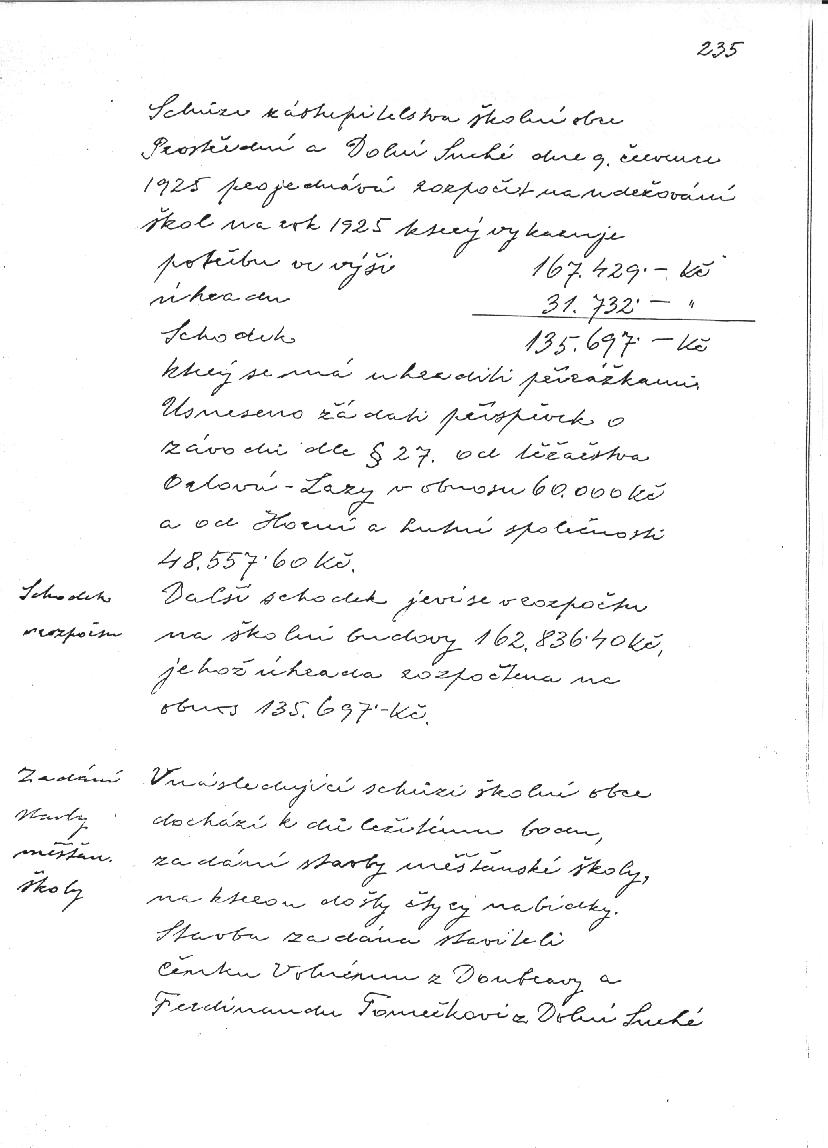 235
Schůze zástupitelstva školní obce
Prostřední a Dolní Suché dne 9. července
1925 projednává rozpočet na udržování
škol na rok 1925 který vykazuje
potřebu ve výši 167.429·— Kč
úhradu 31.732·— "
Schodek 135.697·— Kč
který se má uhraditi přirážkami.
Usneseno žádati příspěvek o
závodu dle § 27. od těžařstva
Orlová-Lazy v obnosu 60.000 Kč
a od Horní a hutní společnosti
48.557·60 Kč.
Schodek
v rozpočtu
Další schodek jeví se v rozpočtu
na školní budovy 162.836·40 Kč,
jehož úhrada rozpočtena na
obnos 135.697·- Kč.
Zadání
stavby
měšťan.
školy
V následující schůzi školní obce
dochází k důležitému bodu,
zadání stavby měšťanské školy,
na kterou došly čtyry nabídky.
Stavba zadána staviteli
Čeňku Volnému z Doubravy a
Ferdinandu Tomečkovi z Dolní Suché